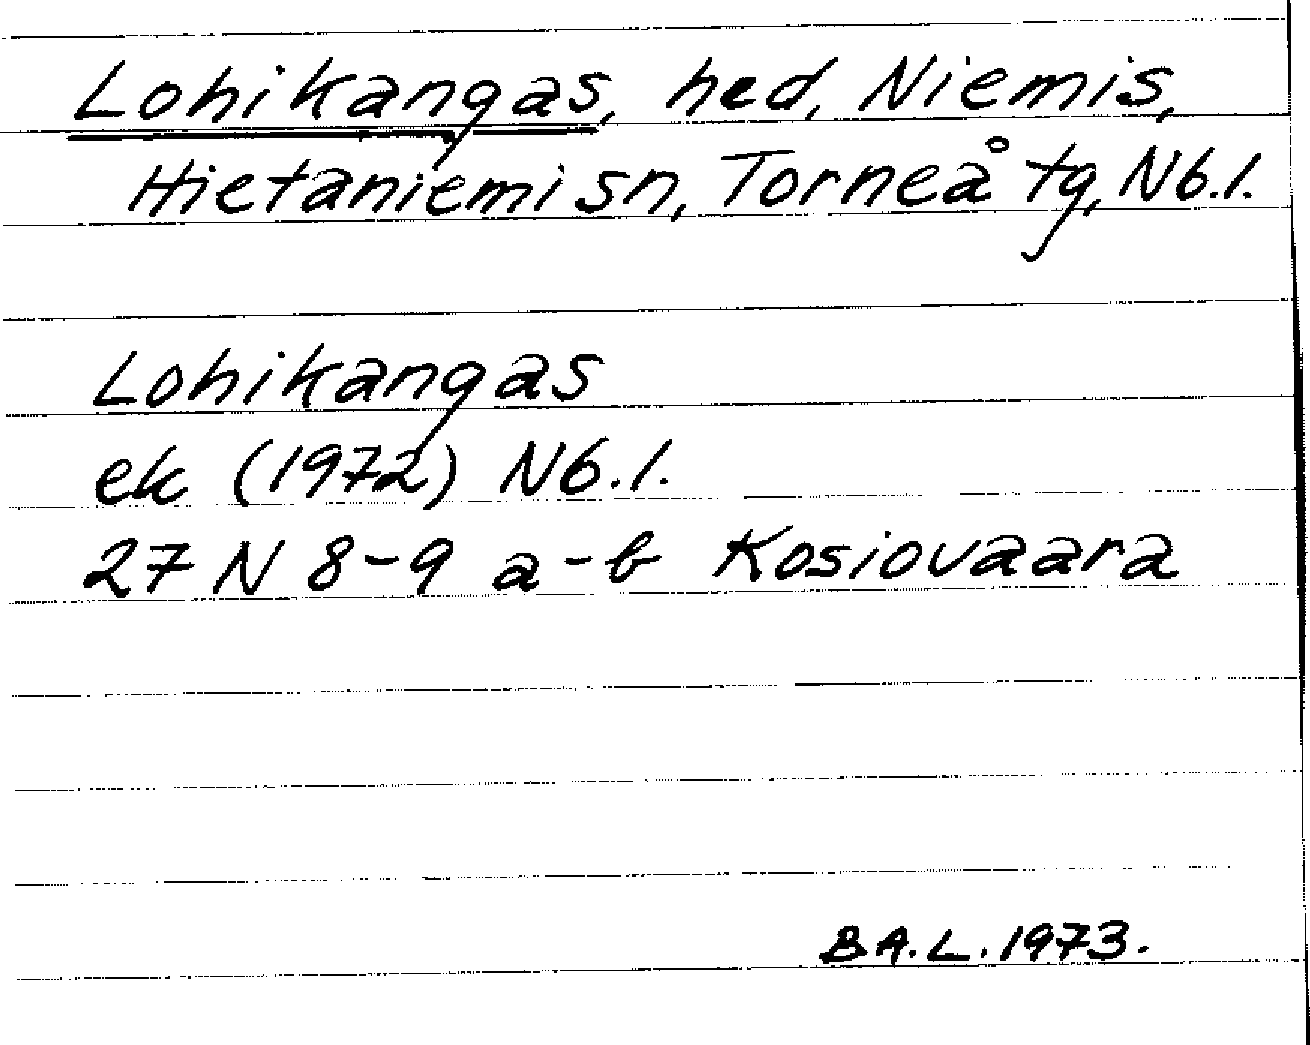 Lohikangas, hed, Niemis,
Hietaniemi sn, Torneå tg, Nb.l.
Lohikangas
ek (1972) Nb.l.
27 N 8-9 a-b Kosiovaara
B A.L. 1973.